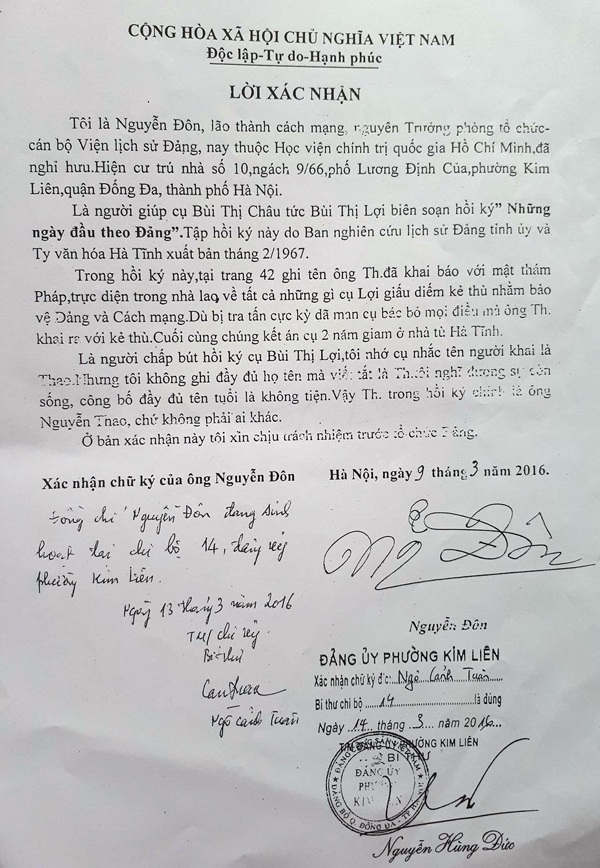 CỘNG HÒA XÃ HỘI CHỦ NGHĨA VIỆT NAM
Độc lập-Tự do-Hạnh phúc
LỜI XÁC NHẬN
Tôi là Nguyễn Đôn, lão thành cách mạng, nguyên Trưởng phòng tổ chức-
cán bộ Viện lịch sử Đảng, nay thuộc Học viện chính trị quốc gia Hồ Chí Minh,đã
nghỉ hưu.Hiện cư trú nhà số 10,ngách 9/66,phố Lương Định Của,phường Kim
Liên,quận Đống Đa, thành phố Hà Nội.
Là người giúp cụ Bùi Thị Châu tức Bùi Thị Lợi biên soạn hồi ký" Những
ngày đầu theo Đảng".Tập hồi ký này do Ban nghiên cứu lịch sử Đảng tỉnh ủy và
Ty văn hóa Hà Tĩnh xuất bản tháng 2/1967.
Trong hồi ký này,tại trang 42 ghi tên ông Th.đã khai báo với mật thám
Pháp,trực diện trong nhà lao về tất cả những gì cụ Lợi giấu diếm kẻ thù nhằm bảo
vệ Đảng và Cách mạng.Dù bị tra tấn cực kỳ dã man cụ bác bỏ mọi điều mà ông Th.
khai ra với kẻ thù.Cuối cùng chúng kết án cụ 2 năm giam ở nhà tù Hà Tĩnh.
Là người chấp bút hồi ký cụ Bùi Thị Lợi,tôi nhớ cụ nhắc tên người khai là
Thao.Nhưng tôi không ghi đầy đủ họ tên mà viết tắt là Th.tôi nghĩ đương sự còn
sống, công bố đầy đủ tên tuổi là không tiện.Vậy Th. trong hồi ký chính là ông
Nguyễn Thao, chứ không phải ai khác.
Ở bản xác nhận này tôi xin chịu trách nhiệm trước tổ chức Đảng.
Xác nhận chữ ký của ông Nguyễn Đôn
Hà Nội, ngày 9 tháng 3 năm 2016.
Đồng chí Nguyễn Đôn đang sinh
hoạt tại chi bộ 14, đảng ủy
phường Kim Liên.
Ngày 13 tháng 3 năm 2016
TM/ chi ủy
Bí thư
Ngô Cảnh Tuân
Ng Đôn
Nguyễn Đôn
ĐẢNG ỦY PHƯỜNG KIM LIÊN
Xác nhận chữ ký đ/c: Ngô Cảnh Tuân
Bí thư chi bộ 14 là đúng
Ngày 14 tháng 3 năm 2016
T/M ĐẢNG ỦY PHƯỜNG KIM LIÊN
BÍ THƯ
ĐẢNG ỦY
PHƯỜNG
KIM LIÊN
Nguyễn Hùng Đức